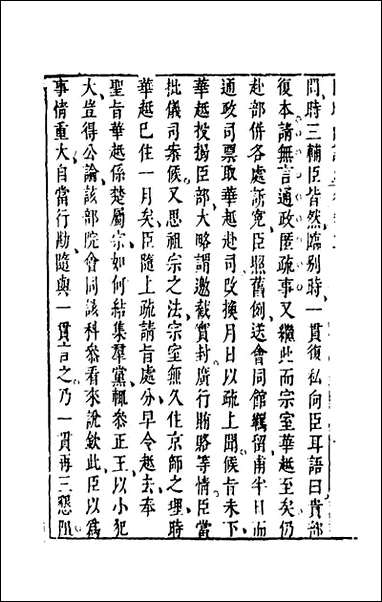 問時三輔臣皆然臨别時一貫復私向臣耳語曰貴部
復本請無言通政匿疏事又繼此而宗室華越至矣仍
赴部併各處訴寃臣照舊例送會同館羈留甫半日而
通政司票取華越赴司改換月日以疏上聞候旨未下
華越投揭臣部大略謂邀截實封廣行賄賂等情臣當
批儀司案候又思祖宗之法宗室無久住京師之理時
華越已住一月矣臣隨上疏請旨處分早令越去奉
聖旨華越係楚屬宗如何結集羣黨輒叅正王以小犯
大豈得公論該部院會同該科叅看來說欽此臣以爲
事情重大自當行勘隨與一貫言之乃一貫再三懇阻